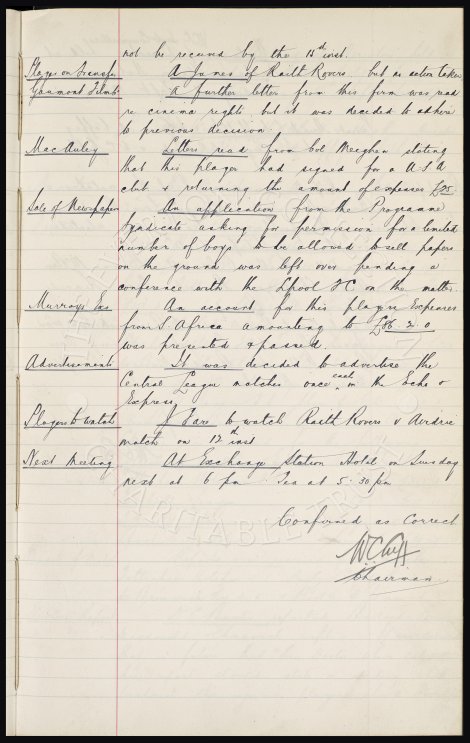 not be received by the 15th inst.
Players on Transfer A James of Raith Rovers but no action taken
Gaumont Films A further letter from this firm was read
re cinema rights but it was decided to adhere
to previous decision.
MacAuley Letters read from Col Meighan stating
that this player had signed for a USA
club & returning the amount of expenses £25
Sale of Newspapers An application from the Programme
Syndicate asking for permission for a limited
number of boys to be allowed to sell papers
on the ground was left over pending a
conference with the Lpool FC on the matter.
Murrays Exs An account for this players Expenses
from S. Africa amounting to
was presented & passed.
Advertisements It was decided to advertise the
Central League matches once each in the Echo &
Express.
Players to watch to watch Raith Rovers v Airdrie
match on 12th inst
Next Meeting At Exchange Station Hotel on Tuesday
next at 6 pm Tea at 5.30 pm
Confirmed as correct
W.C. Cuff
Chairman
CHARITABLE TRUST